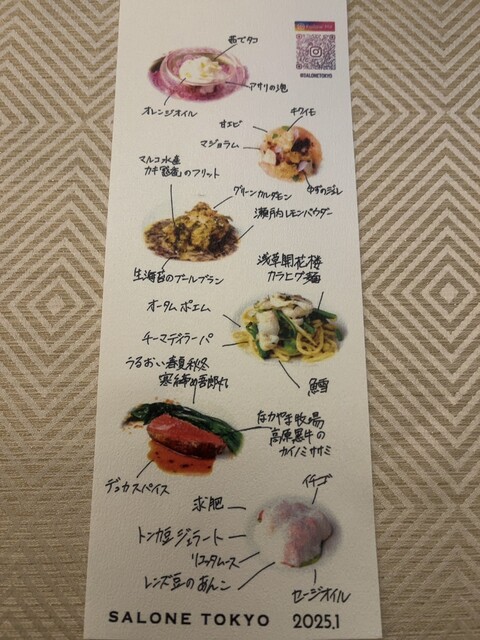 @SALONETOKYO
茹でタコ
アサリの泡
オレンジオイル
キクイモ
甘エビ
マジョラム
ゆずのジュレ
マルコ水産
カキのフリット
グリーンカルダモン
瀬戸内レモンパウダー
生海苔のブールブラン
浅草開花楼
カラヒグ麺
オータムポエム
チーマディラーパ
鱈
うるおい春夏秋冬
寒締め吾郎
なかやま牧場
高原黒牛の
カイノミササミ
デュカスパイス
イチゴ
求肥
トンカ豆ジェラート
リコッタムース
レンズ豆のあんこ
セージオイル
SALONE TOKYO 2025.1